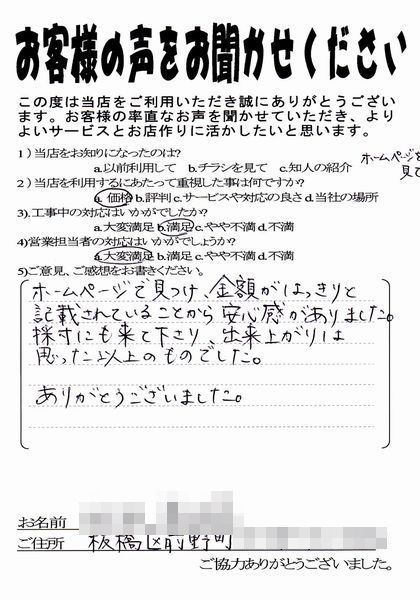 お客様の声をお聞かせください
この度は当店をご利用いただき誠にありがとうござい
ます。お客様の率直なお声を聞かせていただき、より
よいサービスとお店作りに活かしたいと思います。
1)当店をお知りになったのは?
ホームページを
見て
a.以前利用して b.チラシを見て c.知人の紹介
2)当店を利用するにあたって重視した事は何ですか?
a.価格 b.評判 c.サービスや対応の良さ d.当社の場所
3).工事中の対応はいかがでしたか?
a.大変満足 b.満足 c.やや不満 d.不満
4)営業担当者の対応はいかがでしょうか?
a.大変満足 b.満足 c.やや不満 d.不満
5)ご意見、ご感想をお書きください。
ホームページで見つけ、金額がはっきりと
記載されていることから安心感がありました。
採寸にも来て下さり、出来上がりは
思った以上のものでした。
ありがとうございました。
お名前
ご住所 板橋区前野町
ご協力ありがとうございました。